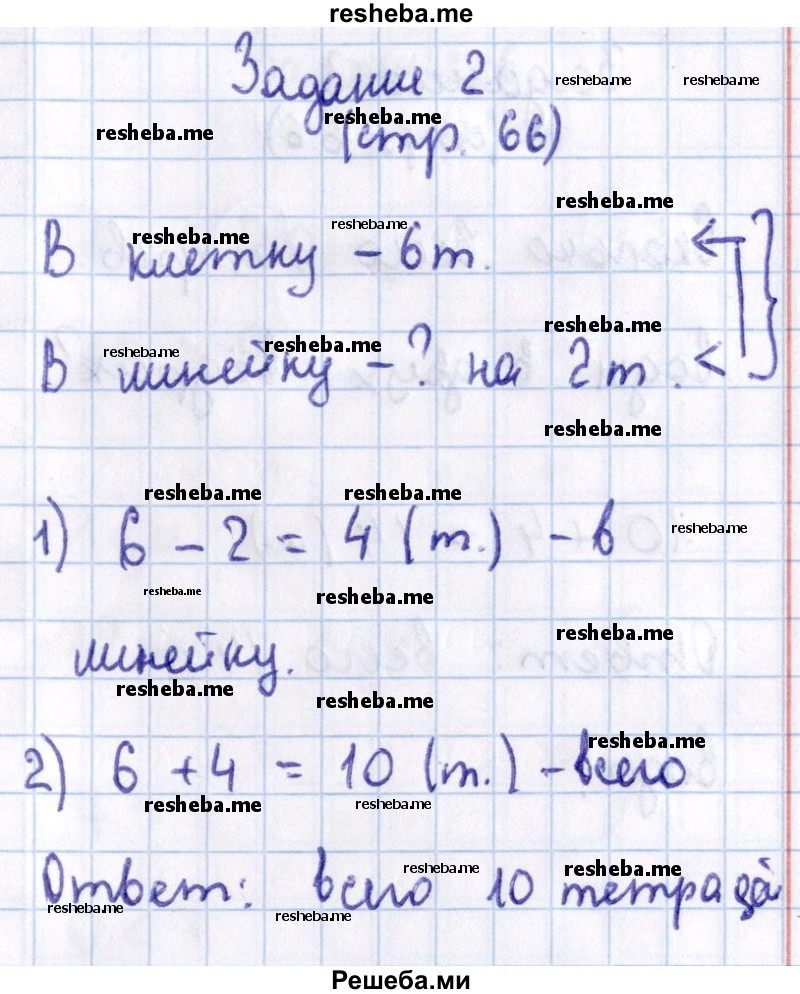 resheba.me
Задание 2 resheba.me resheba.me
resheba.me (стр. 66) resheba.me
resheba.me
В клетку - 6 т. resheba.me resheba.me
resheba.me
В линейку - ? на 2 т. < resheba.me resheba.me
resheba.me
resheba.me resheba.me
1) 6 - 2 = 4 (т.) - в resheba.me
resheba.me resheba.me
resheba.me
линейку.
resheba.me resheba.me
resheba.me
2) 6 + 4 = 10 (т.) - всего
resheba.me resheba.me
resheba.me resheba.me
Ответ: всего 10 тетрадей
resheba.me resheba.me
Решеба.ми